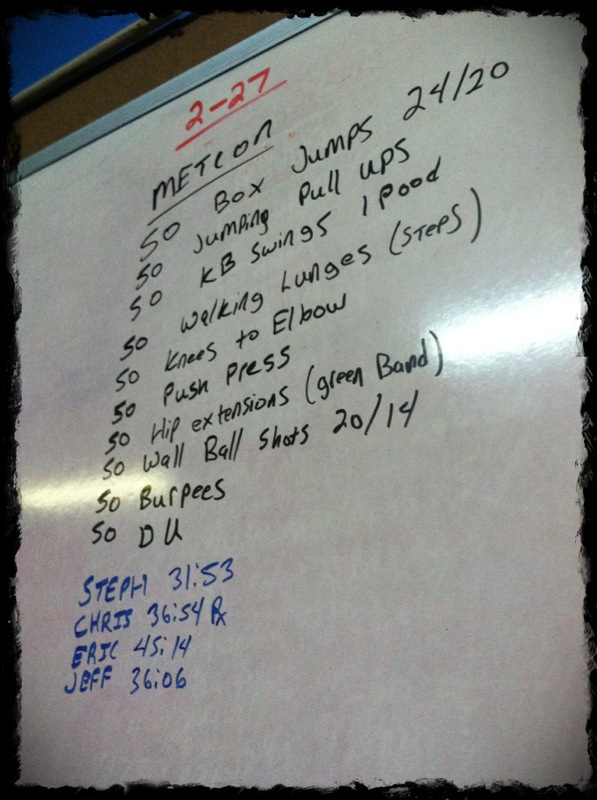 2-27
METCON
50 BOX JUMPS 24/20
50 Jumping Pull UPS
50 KB Swings 1 Pood
50 Walking Lunges (STEPS)
50 Knees to Elbow
50 Push Press
50 Hip extensions (green Band)
50 Wall Ball Shots 20/14
50 Burpees
50 DU
STEPH 31:53
CHRIS 36:54 Rx
ERIC 45:14
JEFF 36:06